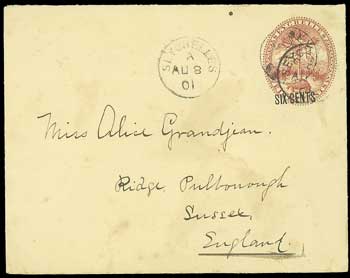 SEYCHELLES
A
AU 8
01
SIX CENTS
Miss Alice Grandjean.
Ridge, Pulborough
Sussex,
England.